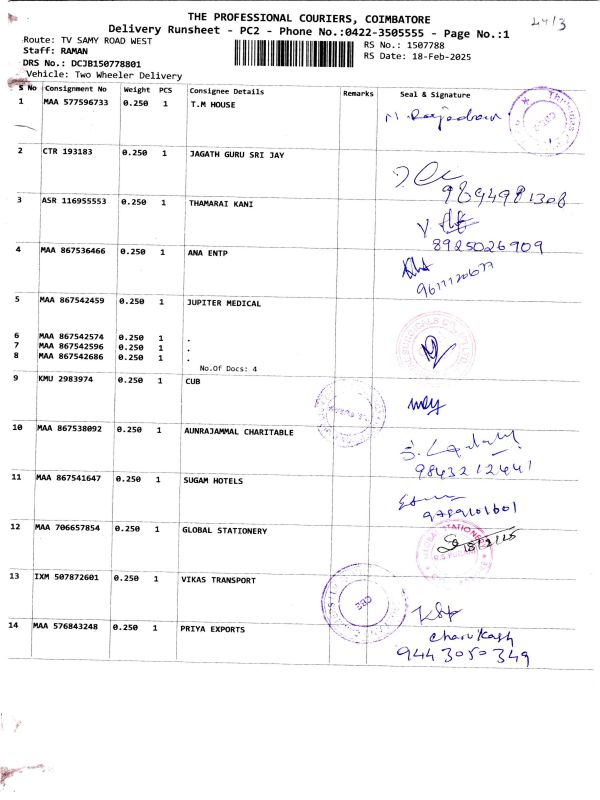 THE PROFESSIONAL COURIERS, COIMBATORE
Delivery Runsheet - PC2 - Phone No.:0422-3505555 - Page No.:1
Route: TV SAMY ROAD WEST
RS No.: 1507788
Staff: RAMAN
RS Date: 18-Feb-2025
DRS No.: DCJB150778801
Vehicle: Two Wheeler Delivery
S No Consignment No Weight PCS Consignee Details Remarks Seal & Signature
1 MAA 577596733 0.250 1 T.M HOUSE
2 CTR 193183 0.250 1 JAGATH GURU SRI JAY
9894981308
3 ASR 116955553 0.250 1 THAMARAI KANI
8925026909
4 MAA 867536466 0.250 1 ANA ENTP
5 MAA 867542459 0.250 1 JUPITER MEDICAL
6 MAA 867542574 0.250 1 .
7 MAA 867542596 0.250 1 .
8 MAA 867542686 0.250 1 .
No.Of Docs: 4
9 KMU 2983974 0.250 1 CUB
10 MAA 867538092 0.250 1 AUNRAJAMMAL CHARITABLE
9843212441
11 MAA 867541647 0.250 1 SUGAM HOTELS
9789101601
12 MAA 706657854 0.250 1 GLOBAL STATIONERY
18/2/25
13 IXM 507872601 0.250 1 VIKAS TRANSPORT
CBE
14 MAA 576843248 0.250 1 PRIYA EXPORTS
Charukash
9443050349